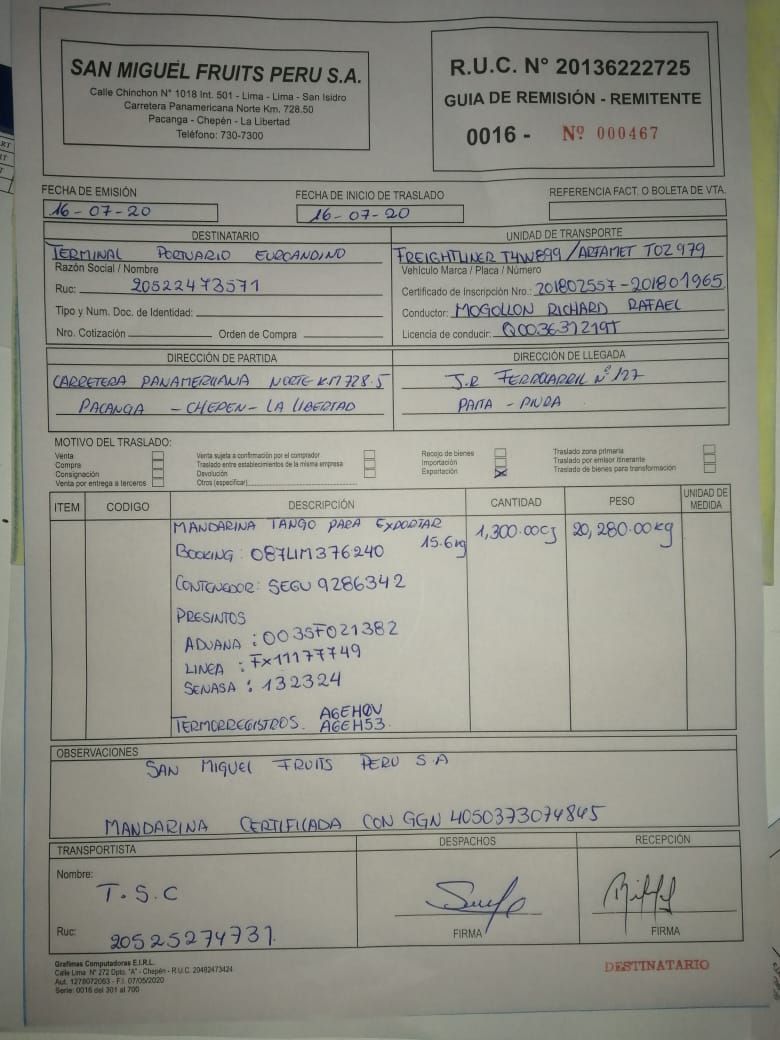 SAN MIGUEL FRUITS PERU S.A.
Calle Chinchon N° 1018 Int. 501 - Lima - Lima - San Isidro
Carretera Panamericana Norte Km. 728.50
Pacanga - Chepén - La Libertad
Teléfono: 730-7300
R.U.C. N° 20136222725
GUIA DE REMISIÓN - REMITENTE
0016 - Nº 000467
FECHA DE EMISIÓN
16-07-20
FECHA DE INICIO DE TRASLADO
16-07-20
REFERENCIA FACT. O BOLETA DE VTA.
DESTINATARIO
TERMINAL PORTUARIO EUROANDINO
Razón Social / Nombre
Ruc: 20522473571
Tipo y Num. Doc. de Identidad:
Nro. Cotización Orden de Compra
UNIDAD DE TRANSPORTE
FREIGHTLINER T4W899 /ARTAMET T0Z979
Vehículo Marca / Placa / Número
Certificado de Inscripción Nro.: 201802557-201801965
Conductor: MOGOLLON RICHARD RAFAEL
Licencia de conducir:
DIRECCIÓN DE PARTIDA
CARRETERA PANAMERICANA NORTE KM 728.5
PACANGA - CHEPEN - LA LIBERTAD
DIRECCIÓN DE LLEGADA
J.R FERROCARRIL N° 127
PAITA - PIURA
MOTIVO DEL TRASLADO:
Venta
Compra
Consignación
Venta por entrega a terceros
Venta sujeta a confirmación por el comprador
Traslado entre establecimientos de la misma empresa
Devolución
Otros (especificar)
Recojo de bienes
Importación
Exportación X
Traslado zona primaria
Traslado por emisor itinerante
Traslado de bienes para transformación
ITEM CODIGO DESCRIPCIÓN CANTIDAD PESO UNIDAD DE MEDIDA
MANDARINA TANGO PARA EXPORTAR 1,300.00CJ 20,280.00kg
15.6kg
BOOKING: 087LIM376240
CONTENEDOR: SEGU 9286342
PRESINTOS
ADUANA : 003SF021382
LINEA : FX11177749
SENASA : 132324
TERMORREGISTROS. AGEH0V
AGEH53
OBSERVACIONES
SAN MIGUEL FRUITS PERU S.A
MANDARINA CERTIFICADA CON GGN 4050373074845
TRANSPORTISTA
Nombre:
T.S.C
Ruc: 20525274731
DESPACHOS
FIRMA
RECEPCIÓN
FIRMA
Grafimas Computadoras E.I.R.L.
Calle Lima N° 272 Dpto. "A" - Chepén - R.U.C. 20482473424
Aut. 1278072063 - F.I. 07/05/2020
Serie: 0016 del 301 al 700
DESTINATARIO